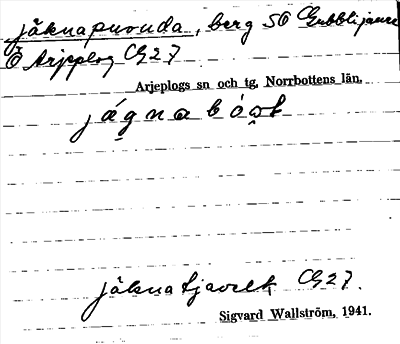 jäknapuonda, berg SO Gubblijaure
Ö Arjeplog Ch27
Arjeplogs sn och tg, Norrbottens län.
jágna
jäkna Ch27.
Sigvard Wallström, 1941.